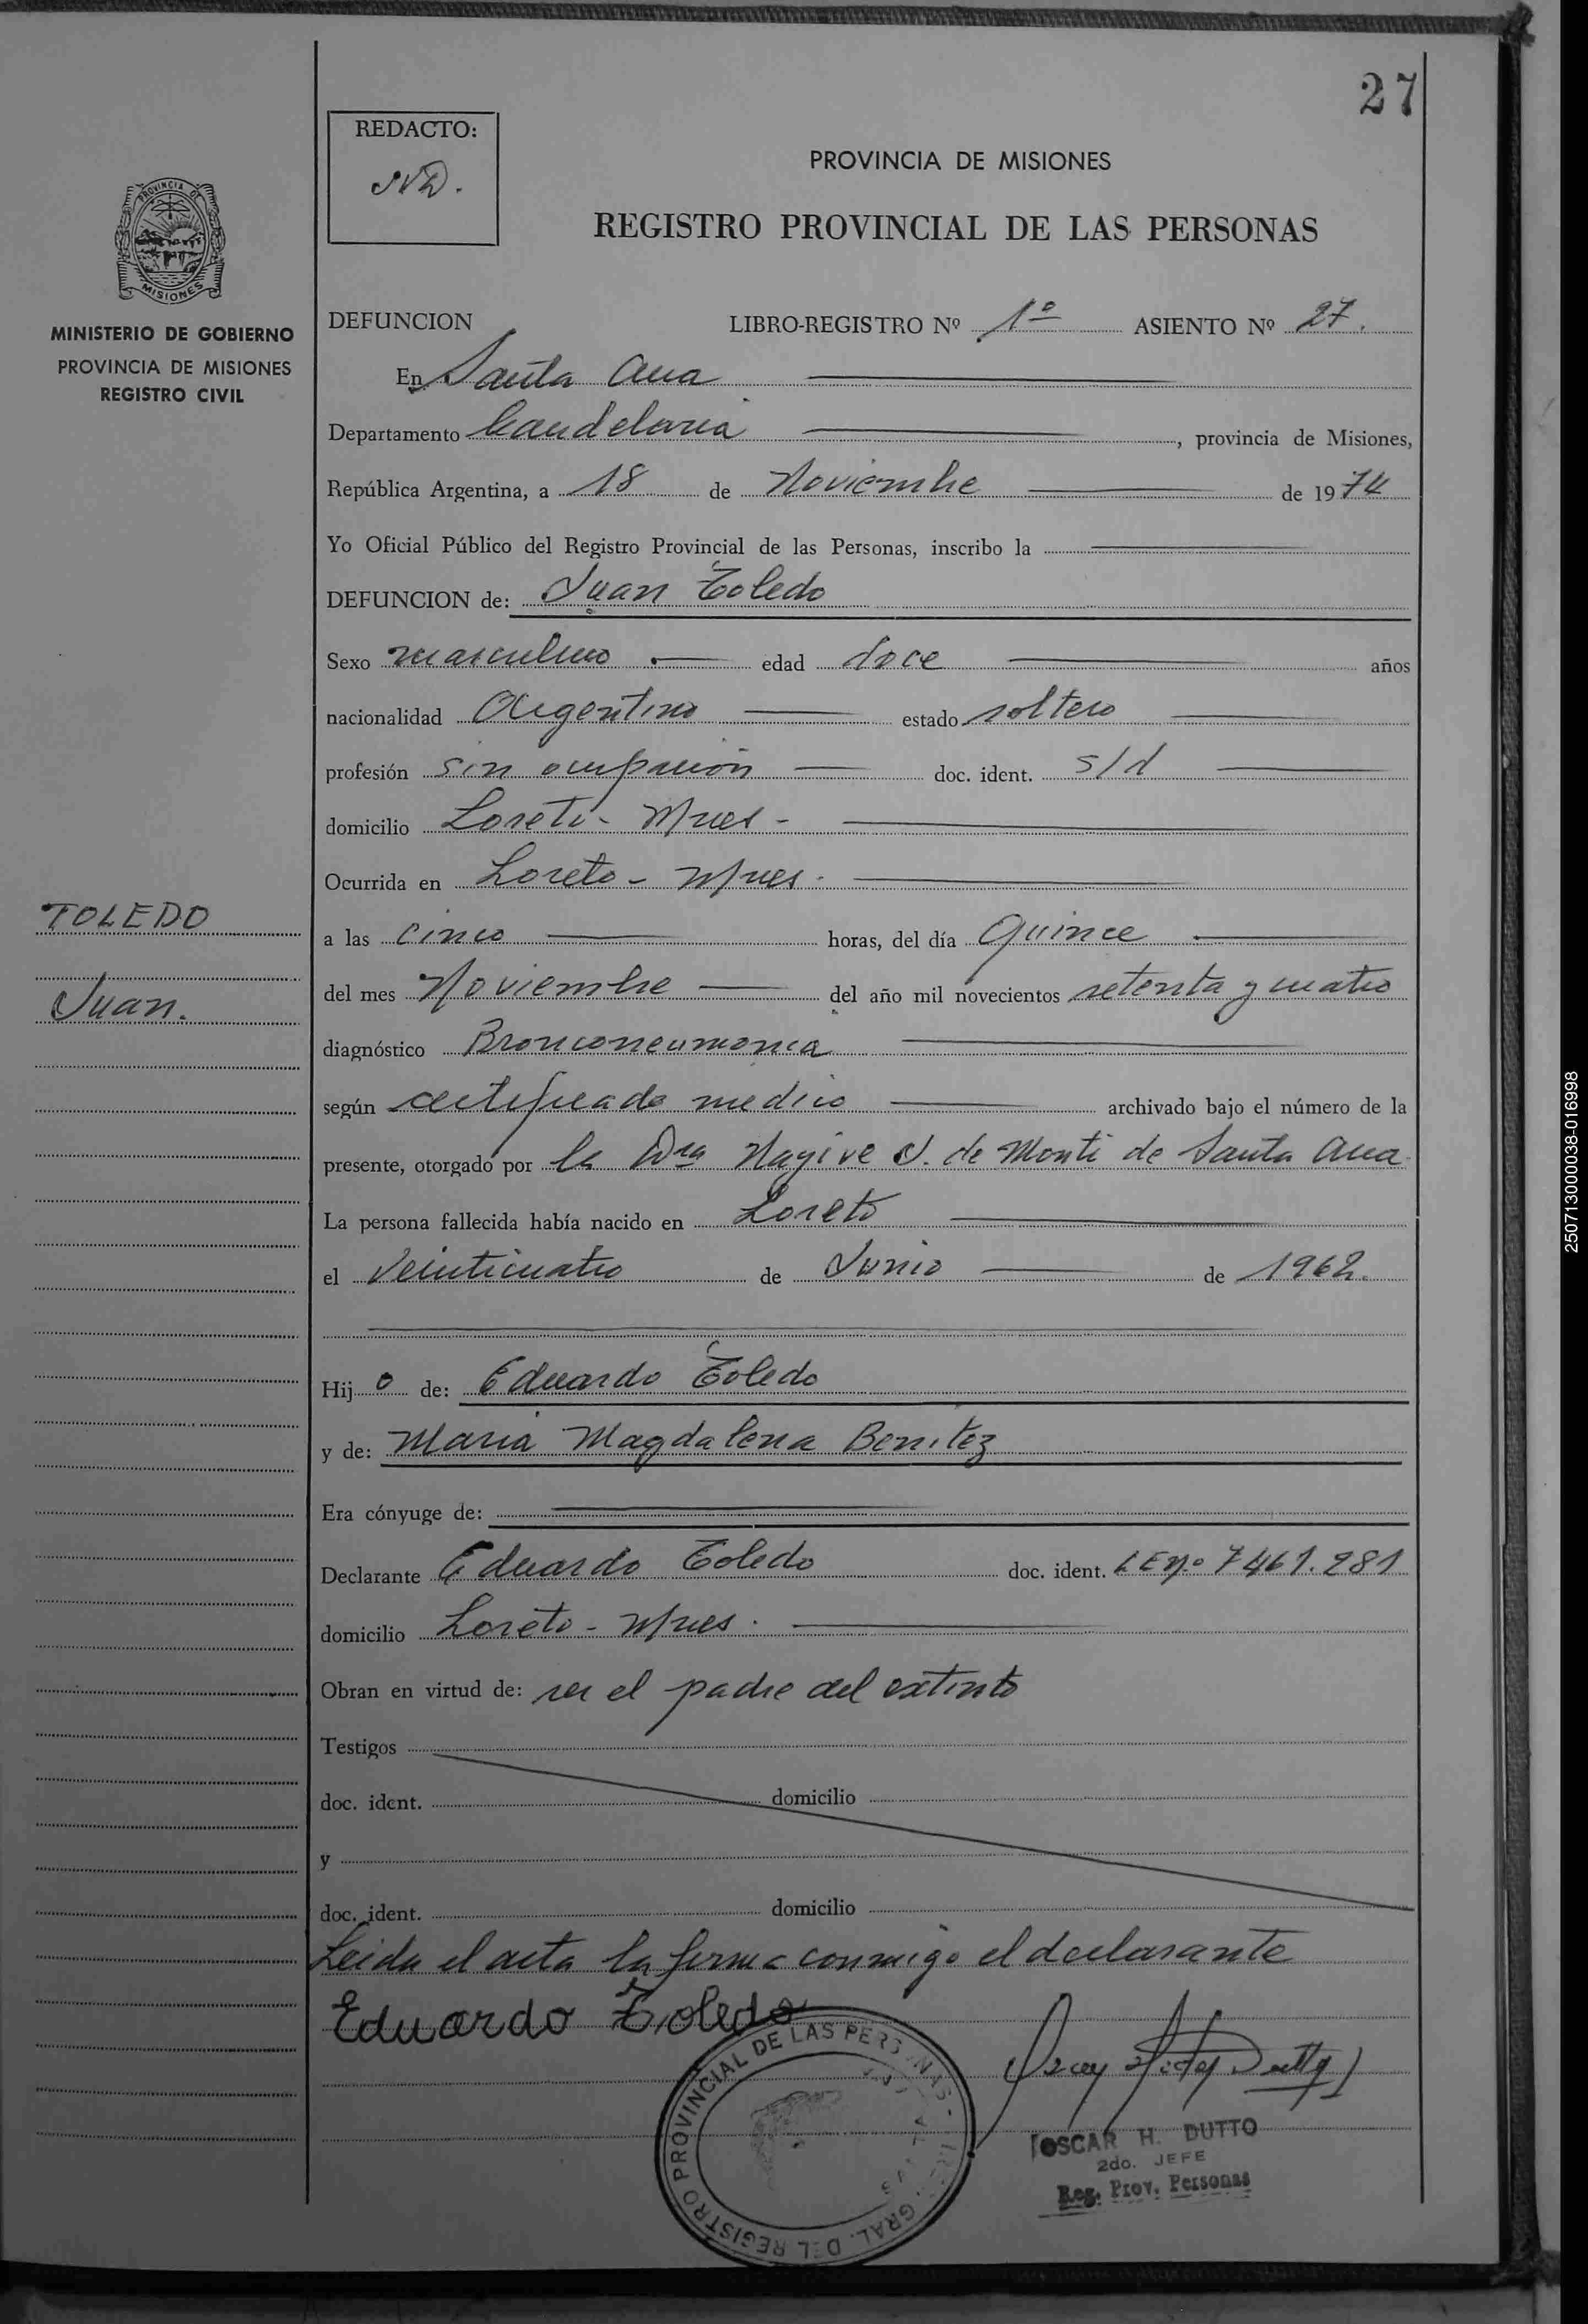 27
REDACTO:
PROVINCIA DE MISIONES
REGISTRO PROVINCIAL DE LAS PERSONAS
PROVINCIA DE
MISIONES
MINISTERIO DE GOBIERNO
PROVINCIA DE MISIONES
REGISTRO CIVIL
DEFUNCION LIBRO-REGISTRO Nº 1º ASIENTO Nº 27.
En Santa Ana
Departamento Candelaria, provincia de Misiones,
República Argentina, a 18 de Noviembre de 1974
Yo Oficial Público del Registro Provincial de las Personas, inscribo la
DEFUNCION de: Juan Toledo
Sexo masculino edad doce años
nacionalidad Argentino estado soltero
profesión sin ocupación doc. ident. s/d
domicilio Loreto - Mnes -
Ocurrida en Loreto - Mnes.
TOLEDO
Juan.
a las cinco horas, del día Quince
del mes Noviembre del año mil novecientos setenta y cuatro
diagnóstico Bronconeumonia
según certificado medico archivado bajo el número de la
presente, otorgado por la Dra Nagive J. de Monti de Santa Ana
La persona fallecida había nacido en Loreto
el Veinticuatro de Junio de 1962.
Hijo de: Eduardo Toledo
y de: Maria Magdalena Benitez
Era cónyuge de:
Declarante Eduardo Toledo doc. ident. LE nº 7461.281
domicilio Loreto - Mnes.
Obran en virtud de: ser el padre del extinto
Testigos
doc. ident. domicilio
y
doc. ident. domicilio
Leida el acta la firma conmigo el declarante
Eduardo Toledo
REGISTRO PROVINCIAL DE LAS PERSONAS - GRAL. DEL
OSCAR H. DUTTO
2do. JEFE
Reg. Prov. Personas
250713000038-016998